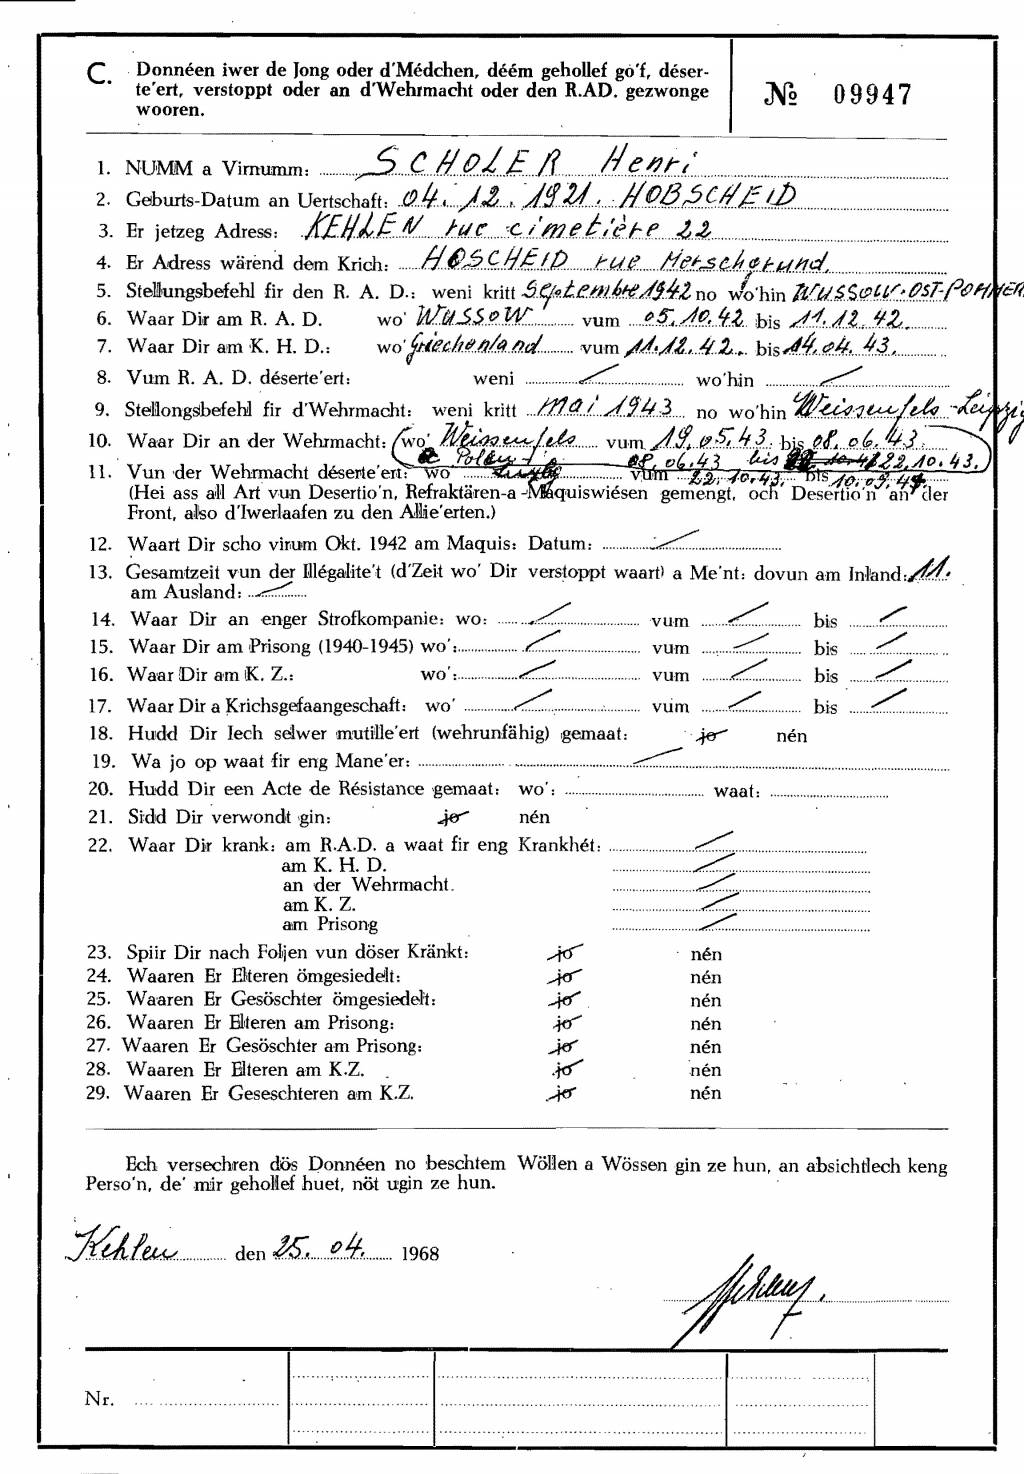 C. Donnéen iwer de Jong oder d'Médchen, déém gehollef go'f, déser-
te'ert, verstoppt oder an d'Wehrmacht oder den R.AD. gezwonge
wooren.
№ 09947
1. NUMM a Virnumm: SCHOLER Henri
2. Geburts-Datum an Uertschaft: 04. 12. 1921. HOBSCHEID
3. Er jetzeg Adress: KEHLEN rue cimetière 22
4. Er Adress wärend dem Krich: HOSCHEID rue Merschgrund.
5. Stellungsbefehl fir den R. A. D.: weni kritt Septembre 1942 no wo'hin WUSSOW-OST-POMMER
6. Waar Dir am R. A. D. wo' WUSSOW vum 05.10.42 bis 11.12.42.
7. Waar Dir am K. H. D.: wo' Griechenland vum 11.12.42. bis 14.04.43.
8. Vum R. A. D. déserte'ert: weni wo'hin
9. Stellongsbefehl fir d'Wehrmacht: weni kritt mai 1943 no wo'hin Weissenfels-Leipzig
10. Waar Dir an der Wehrmacht: (wo' Weissenfels vum 19.05.43. bis 08.06.43.
Polen 08.06.43 bis 22.10.43.
11. Vun der Wehrmacht déserte'ert: wo vum 22.10.43. bis 10.09.44.
(Hei ass all Art vun Desertio'n, Refraktären-a-Maquiswiésen gemengt, och Desertio'n an der
Front, also d'Iwerlaafen zu den Allie'erten.)
12. Waart Dir scho virum Okt. 1942 am Maquis: Datum:
13. Gesamtzeit vun der Illégalite't (d'Zeit wo' Dir verstoppt waart) a Me'nt: dovun am Inland: 11.
am Ausland:
14. Waar Dir an enger Strofkompanie: wo: vum bis
15. Waar Dir am Prisong (1940-1945) wo': vum bis
16. Waar Dir am K. Z.: wo': vum bis
17. Waar Dir a Krichsgefaangeschaft: wo' vum bis
18. Hudd Dir Iech selwer mutille'ert (wehrunfähig) gemaat: jo nén
19. Wa jo op waat fir eng Mane'er:
20. Hudd Dir een Acte de Résistance gemaat: wo': waat:
21. Sidd Dir verwondt gin: jo nén
22. Waar Dir krank: am R.A.D. a waat fir eng Krankhét:
am K. H. D.
an der Wehrmacht.
am K. Z.
am Prisong
23. Spiir Dir nach Foljen vun döser Kränkt: jo nén
24. Waaren Er Elteren ömgesiedelt: jo nén
25. Waaren Er Gesöschter ömgesiedelt: jo nén
26. Waaren Er Elteren am Prisong: jo nén
27. Waaren Er Gesöschter am Prisong: jo nén
28. Waaren Er Elteren am K.Z. jo nén
29. Waaren Er Geseschteren am K.Z. jo nén
Ech versechren dös Donnéen no beschtem Wöllen a Wössen gin ze hun, an absichtlech keng
Perso'n, de' mir gehollef huet, nöt ugin ze hun.
Kehlen den 25. 04. 1968
Nr.